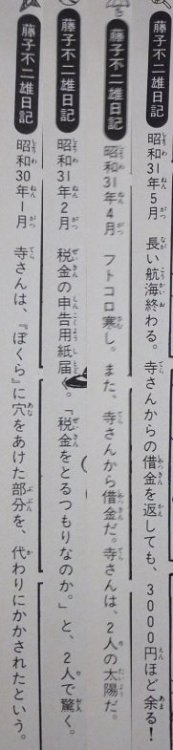 藤子不二雄日記 昭和31年5月 長い航海終わる。寺さんからの借金を返しても、3000円ほど余る！
藤子不二雄日記 昭和31年4月 フトコロ寒し。また、寺さんから借金だ。寺さんは、2人の太陽だ。
藤子不二雄日記 昭和31年2月 税金の申告用紙届く。「税金をとるつもりなのか。」と、2人で驚く。
藤子不二雄日記 昭和30年1月 寺さんは、『ぼくら』に穴をあけた部分を、代わりにかかされたという。